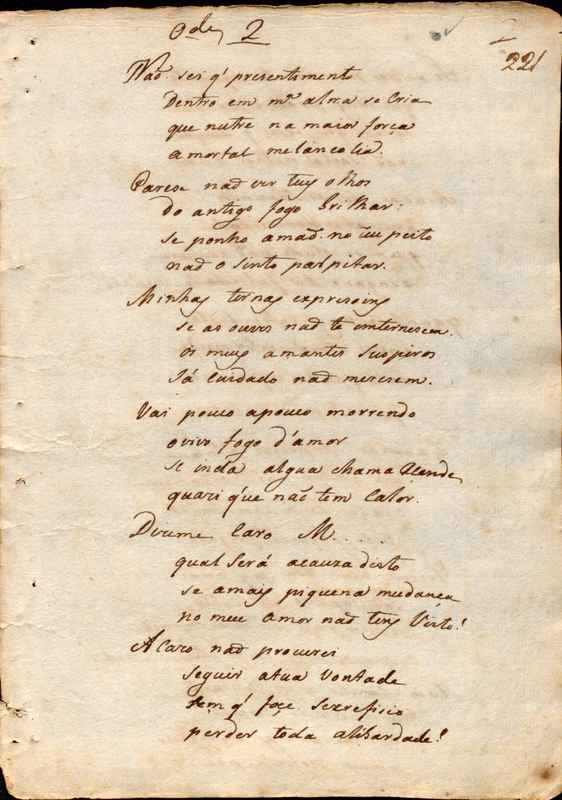 Odes 2
221
Naõ sei q' presentimento
Dentro em mª alma se Cria
que nutre na maior força
a mortal melancolia.
Parese naõ ver teus olhos
do antigo fogo brilhar:
se ponho a maõ no teu peito
naõ o sinto palpitar.
Minhas ternas expresoins
se as ouves naõ te enternesem
os meus amantes suspiros
Já Cuidado naõ meresem.
Vai pouco apouco morrendo
o vivo fogo d'amor
se inda algua chama
quazi q'ue naõ tem Calor.
Dizeme Caro M....
qual Será acauza disto
se a mais piquena mudança
no meu amor naõ tens Visto!
Acazo naõ procurei
seguir atua Vontade
sem q' foçe sacrefisio
perder toda aliberdade!